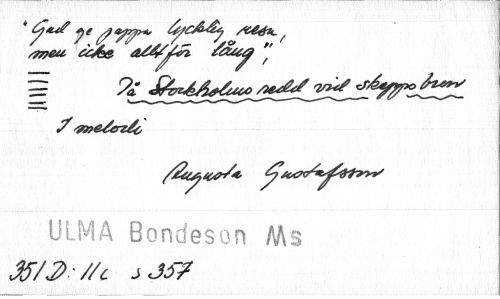 "Gud ge pappa lycklig resa,
men icke allt för lång",
På Stockholms redd vid skeppsbron
I melodi
Augusta Gustafsson
ULMA Bondeson Ms
351 D: 11 c s 357